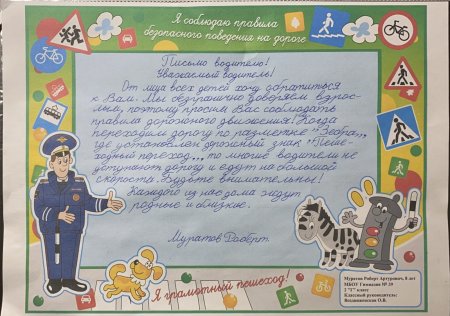 Я соблюдаю правила
безопасного поведения на дороге
Письмо водителю!
Уважаемый водитель!
От лица всех детей хочу обратиться
к Вам. Мы безгранично доверяем взрос-
лым, поэтому просим Вас соблюдать
правила дорожного движения! Когда
переходим дорогу по разметке "Зебра",
где установлен дорожный знак "Пеше-
ходный переход", то многие водители не
уступают дорогу и едут на большой
скорости. Будьте внимательны!
Каждого из нас дома ждут
родные и близкие.
Муратов Роберт.
Я грамотный пешеход!
Муратов Роберт Артурович, 8 лет
МБОУ Гимназия № 39
2 "Г" класс
Классный руководитель: